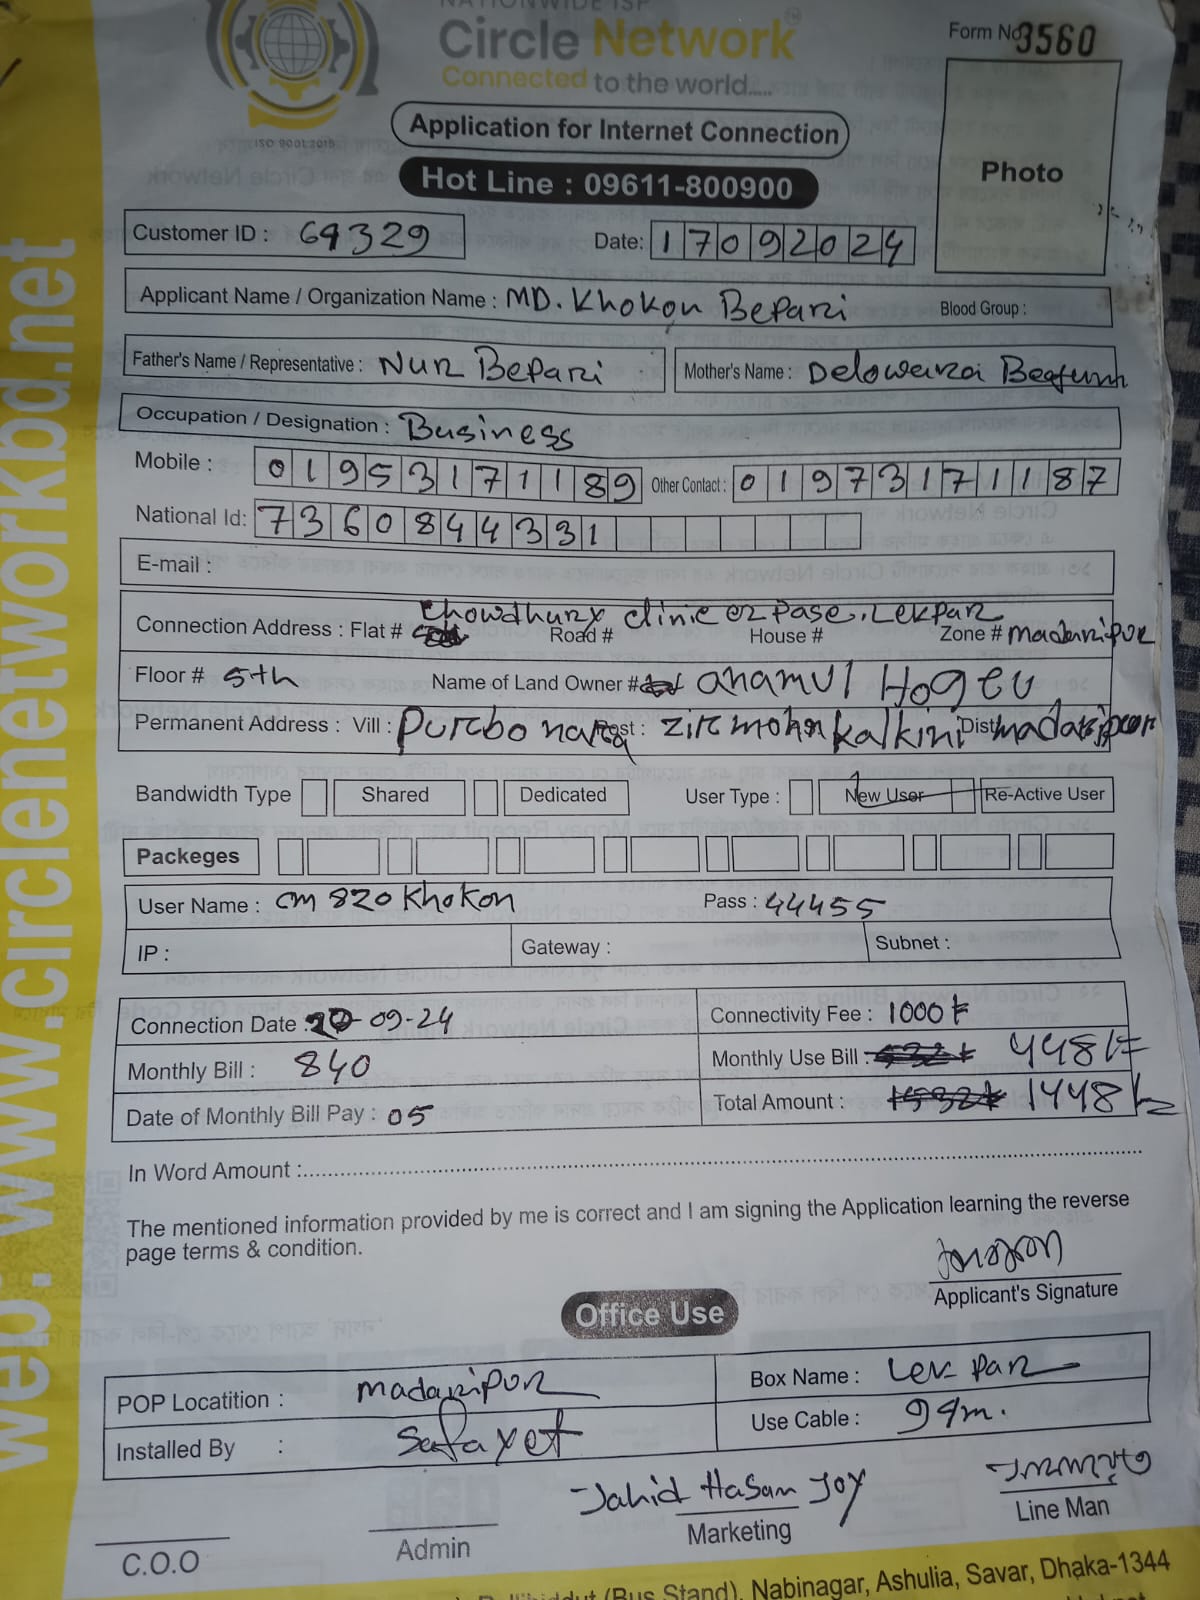 NATIONWIDE ISP
Circle Network
Connected to the world.....
ISO 9001:2015
Form No 3560
Photo
Application for Internet Connection
Hot Line : 09611-800900
Customer ID : 69329 Date: 17092024
Applicant Name / Organization Name : MD. Khokon Bepari Blood Group :
Father's Name / Representative : Nur Bepari Mother's Name : Delowarai Beagum
Occupation / Designation : Business
Mobile : 01953171189 Other Contact : 01973171187
National Id: 7360844331
E-mail :
Chowdhury clinic er pase, Lekpar
Connection Address : Flat # Road # House # Zone # madaripur
Floor # 5th Name of Land Owner # anamul Hogeu
Permanent Address : Vill : Purbo Post : kalkini Dist madaripur
Bandwidth Type Shared Dedicated User Type : New User Re-Active User
Packeges
User Name : cm 820 Khokon Pass : 44455
IP : Gateway : Subnet :
Connection Date : 20-09-24 Connectivity Fee : 1000 ৳
Monthly Bill : 840 Monthly Use Bill : 448/=
Date of Monthly Bill Pay : 05 Total Amount : 1448
In Word Amount :
The mentioned information provided by me is correct and I am signing the Application learning the reverse
page terms & condition.
Applicant's Signature
Office Use
POP Locatition : madaripur Box Name : Lek par
Installed By : Safayet Use Cable : 94m.
Jahid Hasan Joy
C.O.O Admin Marketing Line Man
(Bus Stand), Nabinagar, Ashulia, Savar, Dhaka-1344
web: www.circlenetworkbd.net